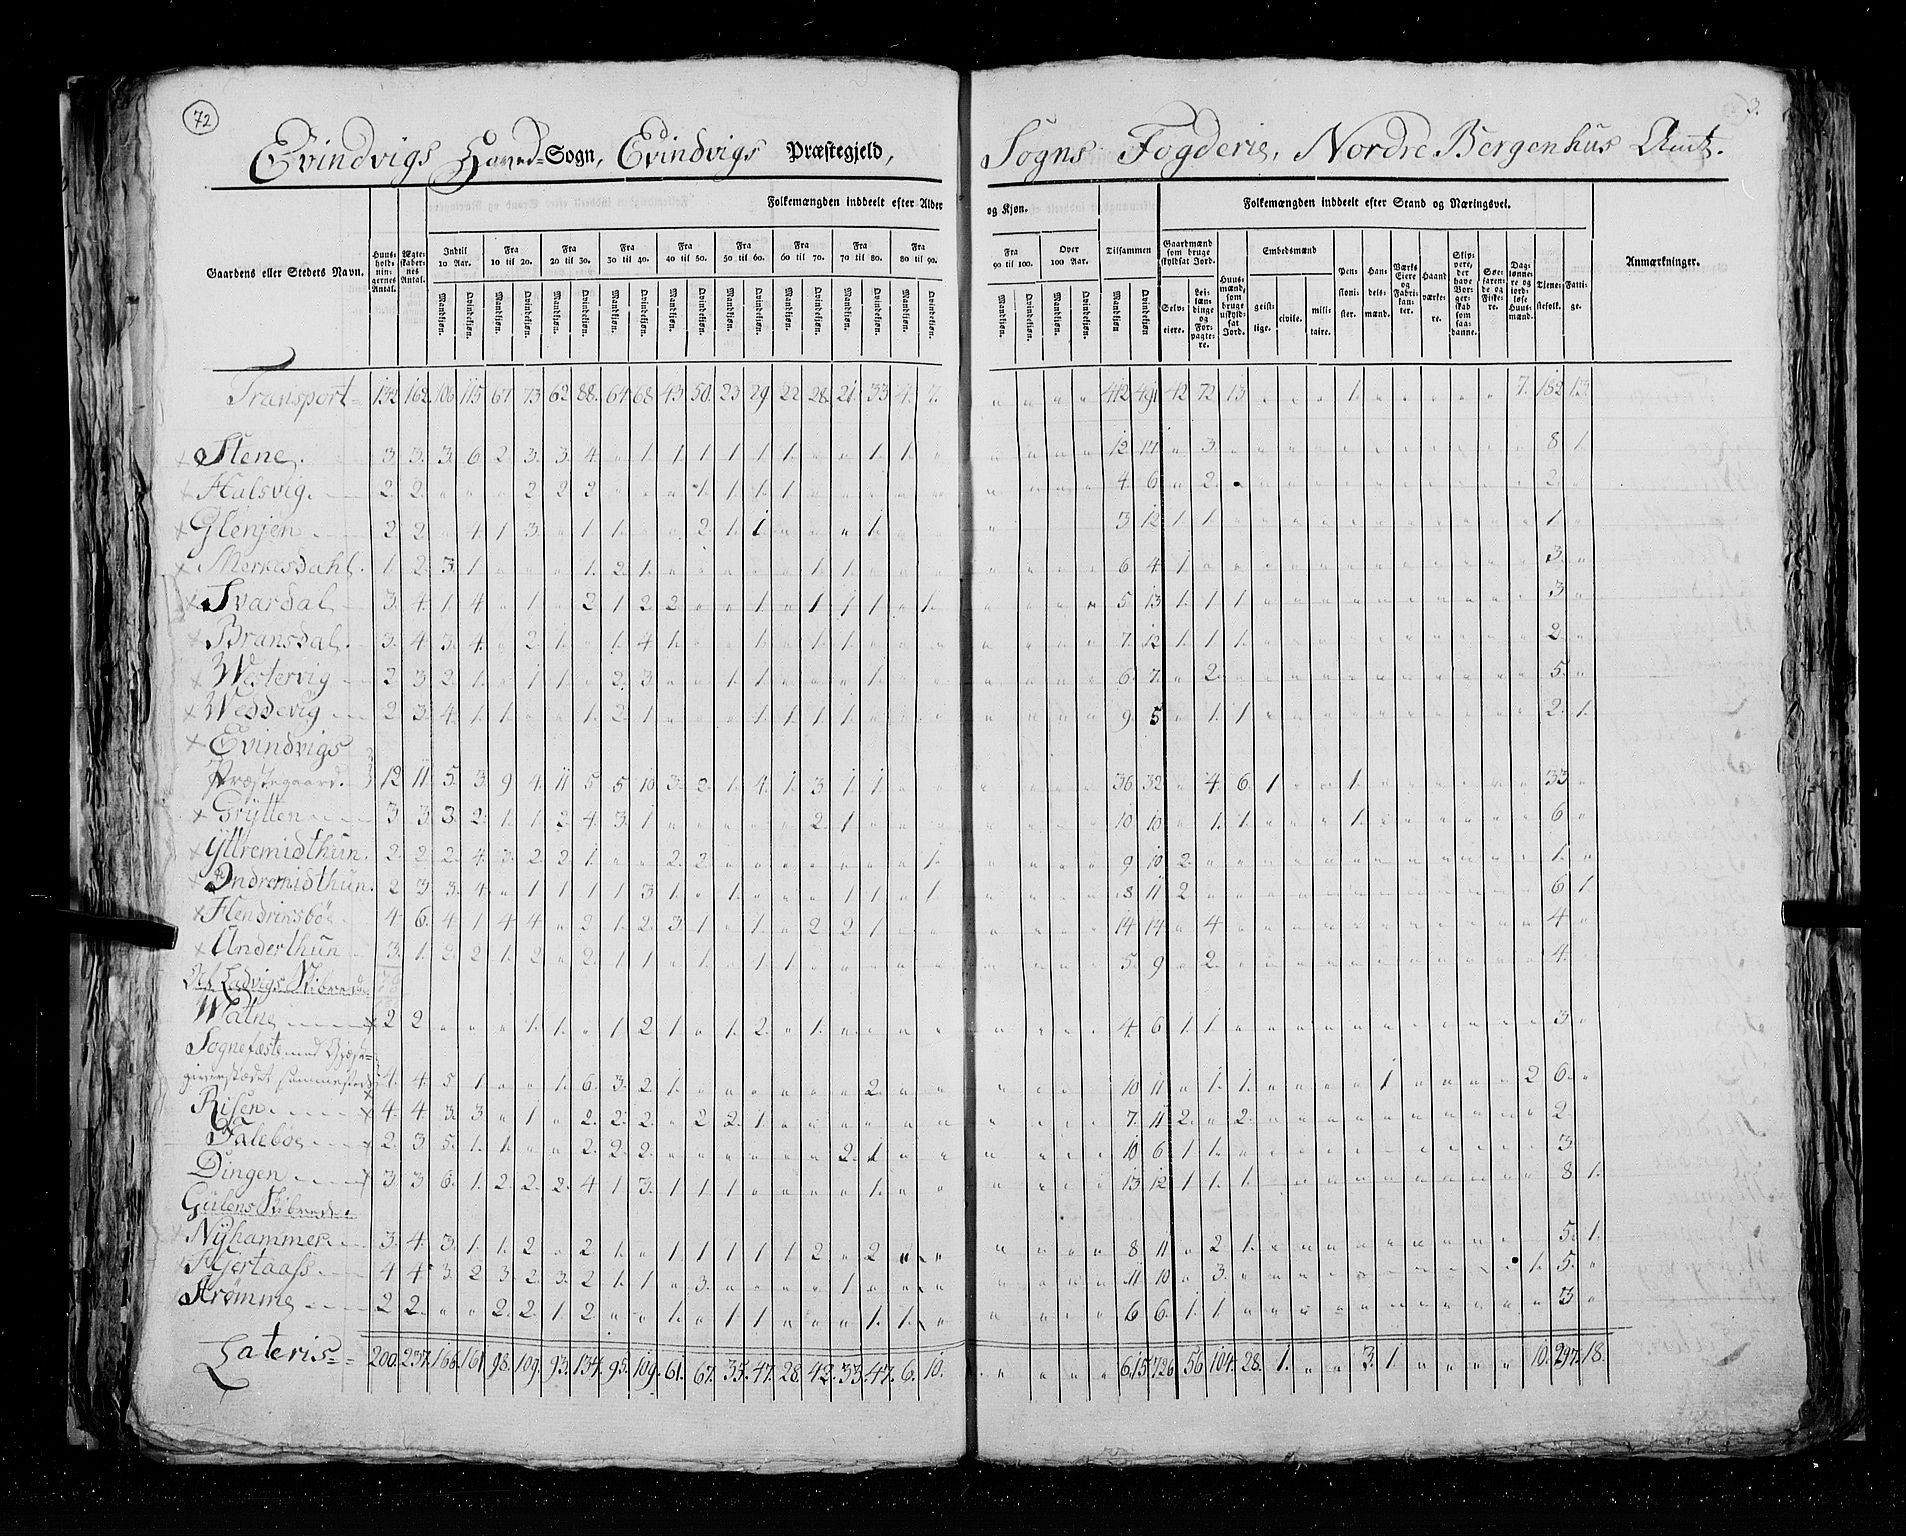 72
3.
Evindvigs Hoved-Sogn, Evindvigs Præstegjeld, Sogns Fogderie, Nordre Bergenhus Amt.
Folkemængden inddeelt efter Alder og Kjøn. Folkemængden inddeelt efter Stand og Næringsvei.
Gaardens eller Stedets Navn. Huusholdningernes Antal. Ægteskabernes Antal. Indtil 10 Aar. Fra 10 til 20. Fra 20 til 30. Fra 30 til 40. Fra 40 til 50. Fra 50 til 60. Fra 60 til 70. Fra 70 til 80. Fra 80 til 90. Fra 90 til 100. Over 100 Aar. Tilsammen
Gaardmænd som bruge skyldsat Jord. Selveiere. Leilændinge og Forpagtere. Huusmænd, som bruge uskyldsat Jord. Embedsmænd geistlige. civile. militaire. Pensionister. Handelsmænd. Værks Eiere og Fabrikanter. Haandværkere. Skippere, der have Borgerskab som saadanne. Søefarende og Fiskere. Daglønnere og jordløse Huusmænd. Tienestefolk. Fattige. Anmærkninger.
Mandkjøn. Qvindekjøn. Mandkjøn. Qvindekjøn. Mandkjøn. Qvindekjøn. Mandkjøn. Qvindekjøn. Mandkjøn. Qvindekjøn. Mandkjøn. Qvindekjøn. Mandkjøn. Qvindekjøn. Mandkjøn. Qvindekjøn. Mandkjøn. Qvindekjøn. Mandkjøn. Qvindekjøn. Mandkjøn. Qvindekjøn. Mandkjøn. Qvindekjøn
Transport 132 162 106 115 67 73 62 88 64 68 43 50 23 29 22 28 21 33 4 7 412 491 42 72 13 1 7 182 13
Stene 3 3 3 6 2 3 3 4 " 1 1 1 1 1 1 " " 1 1 " 12 17 " 3 8 1
Halsvig 2 2 " " " 2 2 2 " " " 1 1 1 1 4 6 " 2 2
Glenjen 2 2 " 4 1 3 " 1 1 " " 2 1 1 " " " 1 3 12 1 1 1
Merkesdahl 1 2 3 1 " " " 1 2 1 " " " " " 1 1 6 4 1 3
Svardal 3 4 1 4 " 1 " 2 1 2 2 " " 1 " 1 1 1 " 1 5 13 1 1 1 3
Bransdal 3 4 3 4 " 2 1 " 1 4 1 " " 1 " 1 1 7 12 1 1 1 2
Westervig 2 3 2 1 " 1 1 " 2 3 " " 1 1 " " " 1 6 7 " 2 5
Weddevig 2 3 4 1 1 " " 1 2 1 " " " 1 1 1 1 9 5 " 1 1 2 1
Evindvigs
Præstegaard 12 11 5 3 9 4 11 5 5 10 3 2 1 4 1 3 1 1 36 32 " 4 6 1 " " 1 33
Grytten 3 3 3 2 1 1 2 4 3 1 " " " " " 2 1 10 10 " 1 1 1 6
Yttremidthun 2 2 2 4 3 2 2 1 " " 2 2 1 9 10 2 1
Indremidthun 2 3 3 4 " 1 1 1 1 3 1 " 1 " " " 1 1 " 1 8 11 2 6 1
Hendriksbøe 4 6 4 1 4 4 " 2 1 2 3 1 " 1 " 2 2 1 14 14 " 4 4
Underthun 3 1 2 2 1 2 " 2 1 1 " 1 " 1 1 5 9 " 2 4
Skibrede
Watne 2 2 " " " 1 1 " 1 2 1 " 1 2 " 1 4 6 1 1 3
Sognefæste med Gjæst-
giverstædet sammesteds 4 4 5 1 " " 1 6 3 2 1 2 10 11 " 1 1 1 2 6
Risen 4 4 3 3 " 1 " 2 2 2 " 2 2 1 7 11 2 " 2 2
Falebøe 2 3 5 1 1 " " 2 2 2 2 1 10 6 1 1 3
Dingen 3 3 6 1 2 2 2 4 1 3 1 1 1 " " " " 1 13 12 1 1 1 8 1
Gulens Skibrede
Nyhammer 3 4 3 1 1 2 " 2 1 " 1 1 1 1 1 2 " 2 8 11 " 2 1 5 1
Hjertaass 4 4 3 2 3 2 3 2 1 1 " 3 " " " " 1 11 10 " 3 1 5
Strømme 2 2 " " 2 2 1 2 " " 1 " 1 1 " " " 1 1 6 6 1 1 3
Lateris 200 237 166 161 98 109 93 134 95 109 61 67 35 47 28 42 33 47 6 10 615 726 56 104 28 1 " " 3 1 " " " " 10 297 18